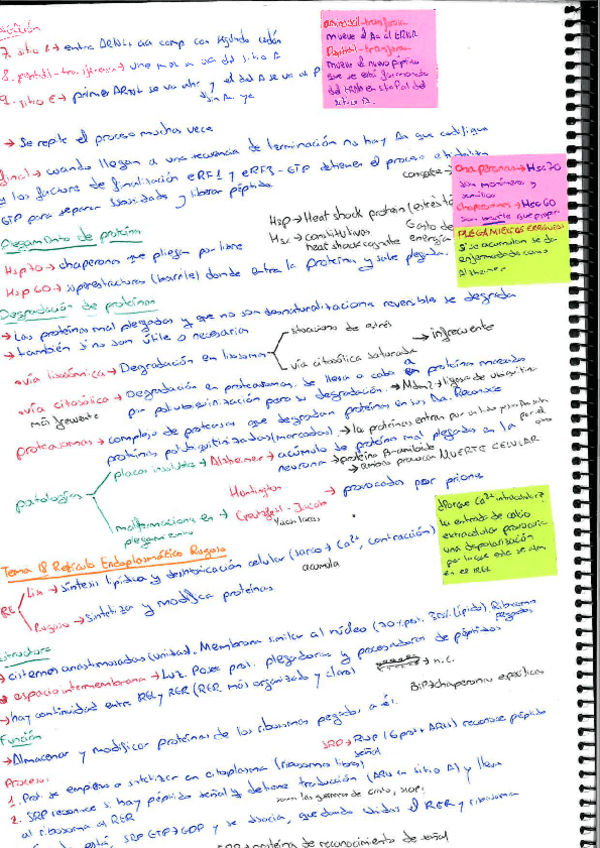 7. sitio A → entra ARNt aa comp con segundo codón
8. peptidil-transferasa → une
9. sitio E → primer ARNt se va ahí y el del A se va al P
sin Aa. ya
aminoacil-transferasa
mueve el Aa al
Peptidil-transferasa
mueve el nuevo péptido
que se está formando
del tRNA en sitio P al del
sitio A.
→ Se repite el proceso muchas veces
final → cuando llegan a una secuencia de terminación no hay Aa que codifique
y los factores de finalización eRF1 y eRF3-GTP detienen el proceso e hidrolizan
GTP para separar subunidades y liberar péptido.
Chaperonas → Hsc70
son monómeros y
Chaperoninas → Hsc60
son
PLEGAMIENTOS ERRÓNEOS
Si se acumulan se dan
enfermedades como
Alzheimer
Plegamiento de proteína
Hsp → Heat shock protein (estrés
Hsc → constitutivas
heat shock cognate
Gasto de
energía
Hsp70 → chaperonas que pliegan por libre
Hsp60 → superestructuras (barrile) donde entra la proteína y sale plegada.
Degradación de proteínas
→ Las proteínas mal plegadas y que no son desnaturalitaciona reversible se degrada
→ también si no son útile o necesarias
• vía lisosómica → Degradación en lisosomas
situaciones de estrés
vía citosólica saturada
→ infrecuente
• vía citosólica → Degradación en proteasomas. Se lleva a cabo a proteína marcada
más frecuente
por poliubiquitinización para su degradación. → Mdm2 → ligasa de ubiquitina
proteasomas → complejo de proteasas que degradan proteínas en sus Aa. Reconoce
proteínas poliubiquitinizadas (marcadas). → la proteínas entran por un lado
por el otro
patologías
placas insolubles → Alzheimer → acúmulo de proteína mal plegadas en la
neurona → proteína B-amiloide
→ ambas provocan MUERTE CELULAR
Huntington
malformaciones en →
plegamiento
Creutzfeld-Jacob
Vacas locas
→ provocada por priones
¿Porque Ca2+ intracelular?
La entrada de calcio
extracelular provocaría
una depolarización
por lo que este se alm
en el REL
Tema 18 Retículo Endoplasmático Rugoso
RE
Liso → síntesis lipídica y destoxicación celular (sarco → Ca2+, contracción)
acumula
Rugoso → sintetiza y modifica proteínas
Estructura
→ cisternas anastomosadas (unidas). Membrana similar al núcleo (70% prot. 30% lípido). Ribosomas
pegados
→ espacio intermembrana → Luz. Posee prot. plegadoras y procesadoras de péptidos
→ n.c.
→ hay continuidad entre REL y RER (RER más organizado y claro)
BiP → chaperonina específicas
Función
→ Almacenar y modificar proteínas de los ribosomas pegados a él.
SRP → RNP (6 prot + ARNs) reconoce péptido
señal
Proceso:
1. Prot se empieza a sintetizar en citoplasma (ribosomas libres)
2. SRP reconoce si hay péptido señal y detiene traducción (ARN en sitio A) y lleva
al ribosoma al RER
está, SRP GTP → GDP y se disocia, quedando unidas el RER y ribosoma
proteína de reconocimiento de señal